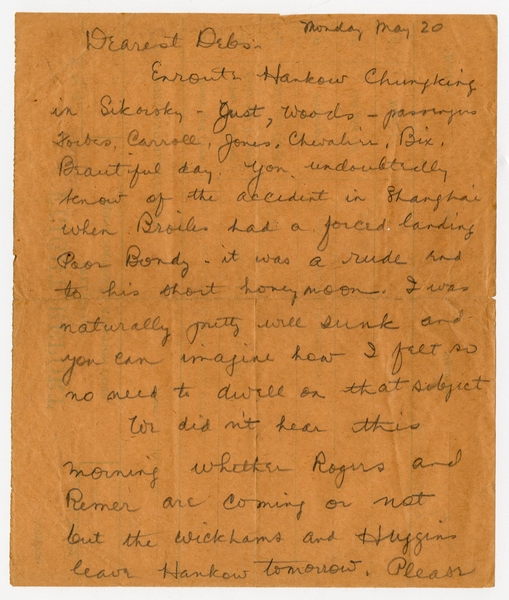 Monday May 20
Dearest Debs -
Enroute Hankow Chungking
in Sikorsky - Just, Woods - passengers
Forbes, Carroll, Jones, Chevalier, Bix.
Beautiful day. You undoubtedly
know of the accident in Shanghai
when Broiles had a forced landing
Poor Bondy - it was a rude end
to his short honeymoon. I was
naturally pretty well sunk and
you can imagine how I felt so
no need to dwell on that subject
We didn't hear this
morning whether Rogers and
Remer are coming or not
but the Wickhams and Huggins
leave Hankow tomorrow. Please